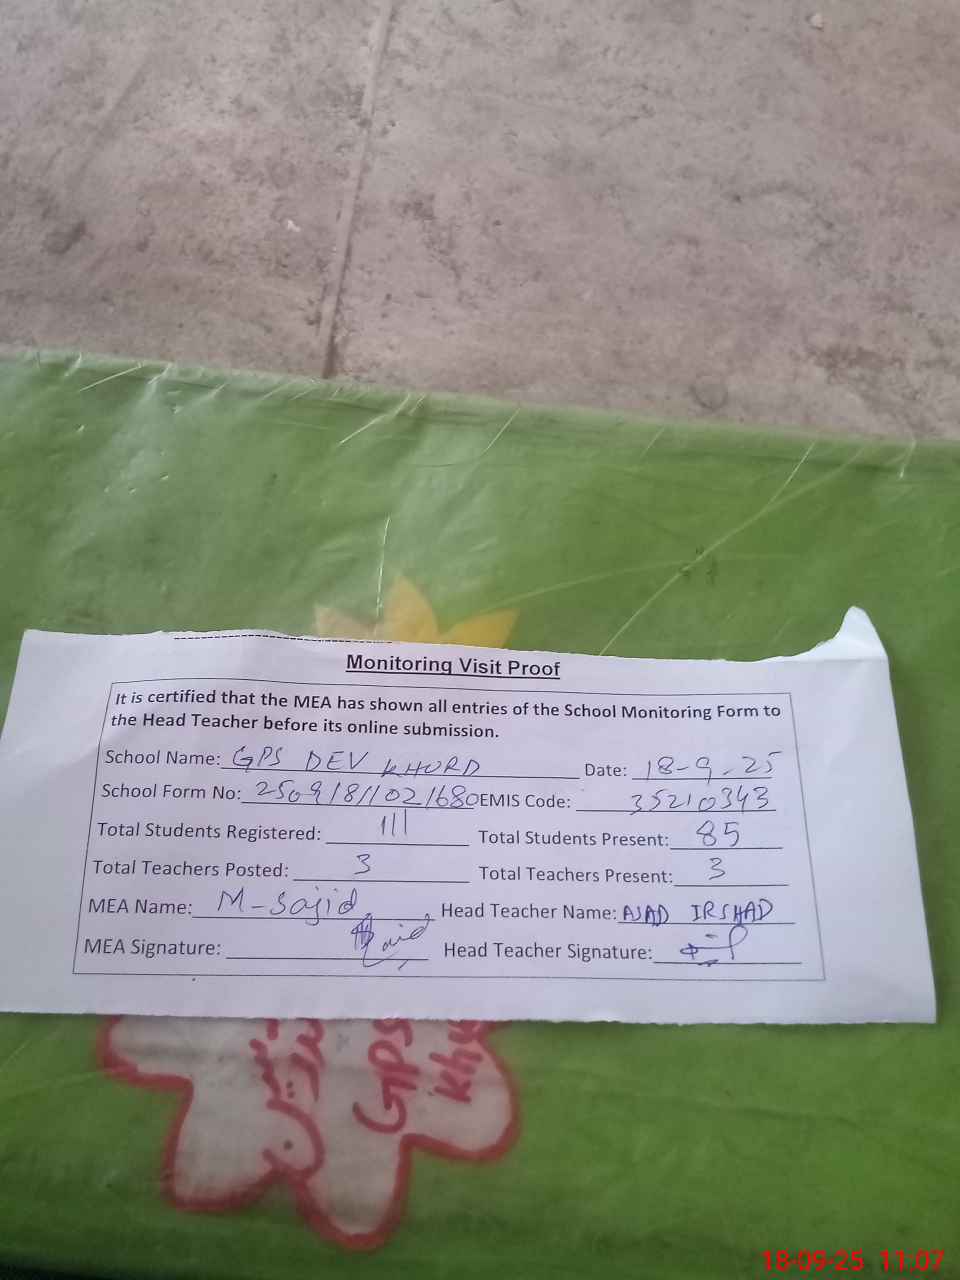 Monitoring Visit Proof
It is certified that the MEA has shown all entries of the School Monitoring Form to
the Head Teacher before its online submission.
School Name: GPS DEV KHURD Date: 18-9-25
School Form No: 25091811021680 EMIS Code: 35210343
Total Students Registered: 111 Total Students Present: 85
Total Teachers Posted: 3 Total Teachers Present: 3
MEA Name: M-Sajid Head Teacher Name: ASAD IRSHAD
MEA Signature: Head Teacher Signature:
GPS
khu
18-09-25 11:07